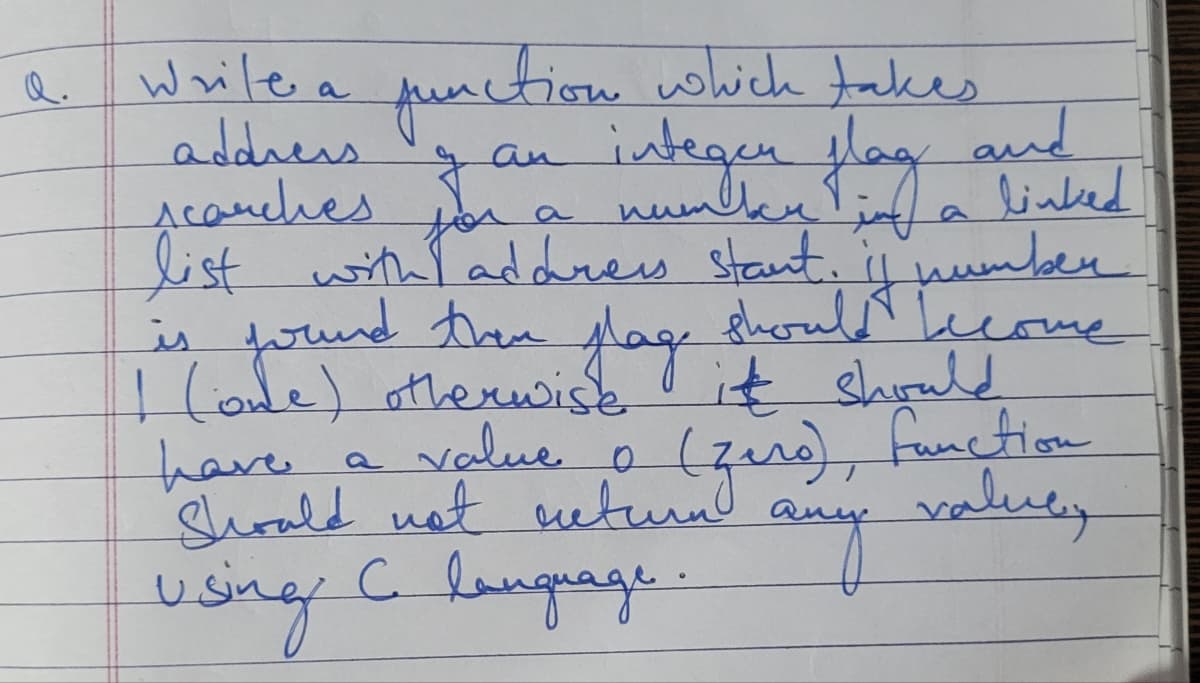 Q. Write a function which takes
address of an integer flag and
searches for a number in a linked
list with address start. if number
is found then flag should become
1 (one) otherwise it should
have a value 0 (zero), function
Should not return any value,
Using C language.